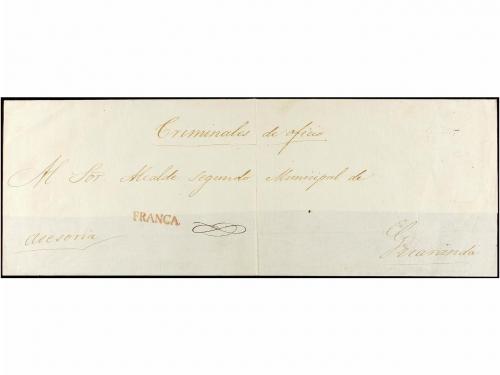 Criminales de oficio
Al Sór Alcalde segundo Municipal de
FRANCA.
asesoria
Guaranda